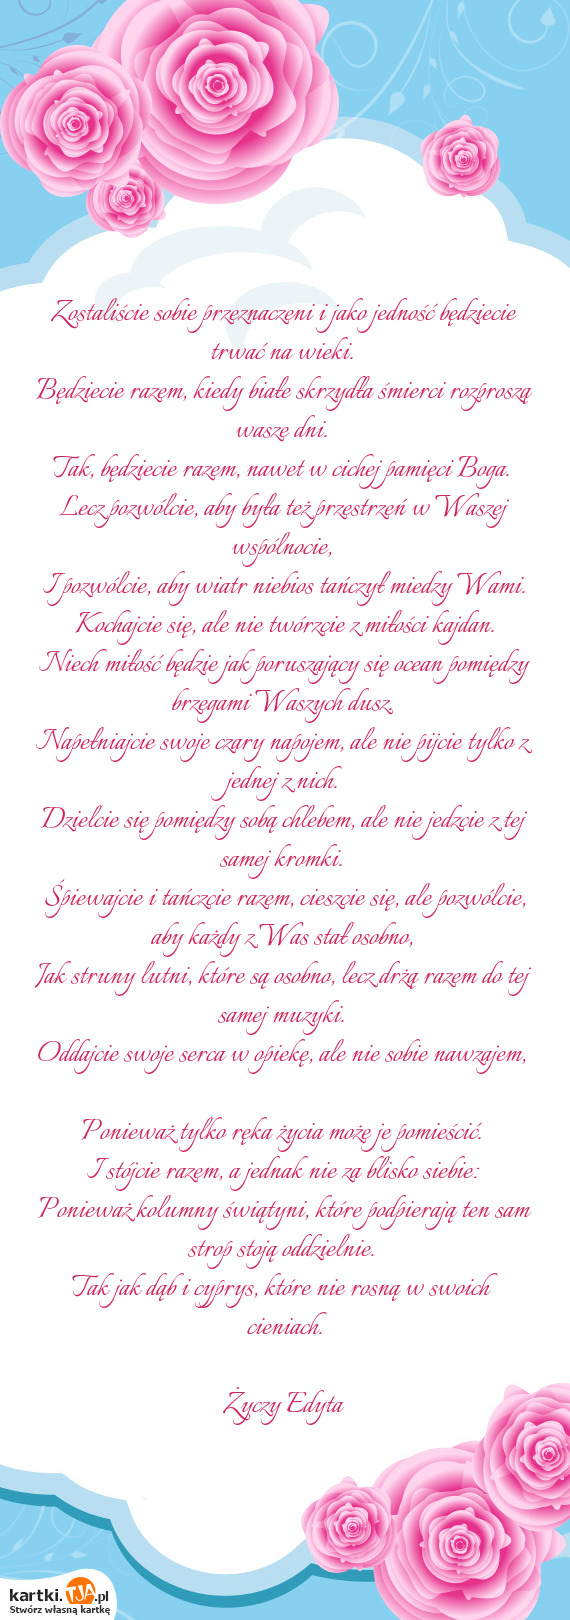 Zostaliście sobie przeznaczeni i jako jedność będziecie
trwać na wieki.
Będziecie razem, kiedy białe skrzydła śmierci rozproszą
wasze dni.
Tak, będziecie razem, nawet w cichej pamięci Boga.
Lecz pozwólcie, aby była też przestrzeń w Waszej
wspólnocie,
I pozwólcie, aby wiatr niebios tańczył miedzy Wami.
Kochajcie się, ale nie twórzcie z miłości kajdan.
Niech miłość będzie jak poruszający się ocean pomiędzy
brzegami Waszych dusz.
Napełniajcie swoje czary napojem, ale nie pijcie tylko z
jednej z nich.
Dzielcie się pomiędzy sobą chlebem, ale nie jedzcie z tej
samej kromki.
Śpiewajcie i tańczcie razem, cieszcie się, ale pozwólcie,
aby każdy z Was stał osobno,
Jak struny lutni, które są osobno, lecz drżą razem do tej
samej muzyki.
Oddajcie swoje serca w opiekę, ale nie sobie nawzajem,
Ponieważ tylko ręka życia może je pomieścić.
I stójcie razem, a jednak nie za blisko siebie:
Ponieważ kolumny świątyni, które podpierają ten sam
strop stoją oddzielnie.
Tak jak dąb i cyprys, które nie rosną w swoich
cieniach.
Życzy Edyta
kartki.TJA.pl
Stwórz własną kartkę